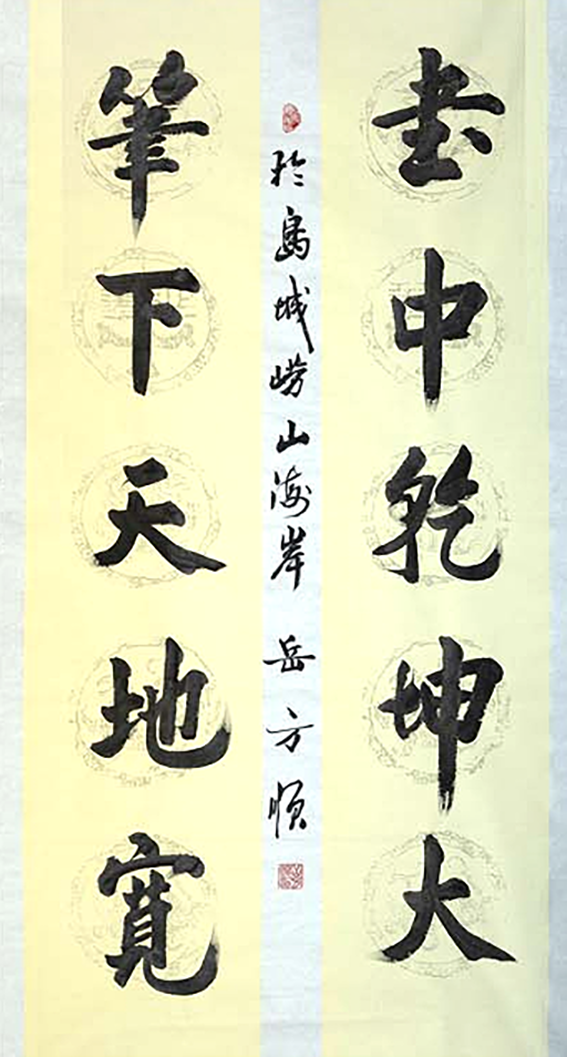 書中乾坤大
筆下天地寬
於島城崂山海岸 岳方順